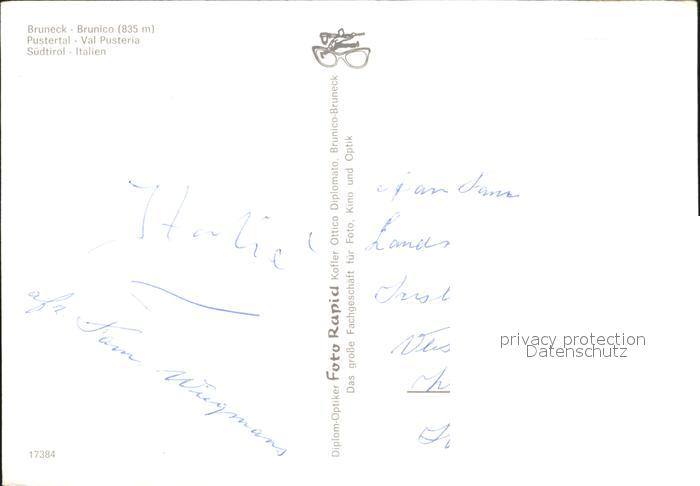 Bruneck - Brunico (835 m)
Pustertal - Val Pusteria
Südtirol - Italien
Diplom-Optiker Foto Rapid Kofler Ottico Diplomato, Brunico-Bruneck
Das große Fachgeschäft für Foto, Kino und Optik
Italië
afz. Fam Wiegmans
aan Fam
Lands
privacy protection
Datenschutz
17384